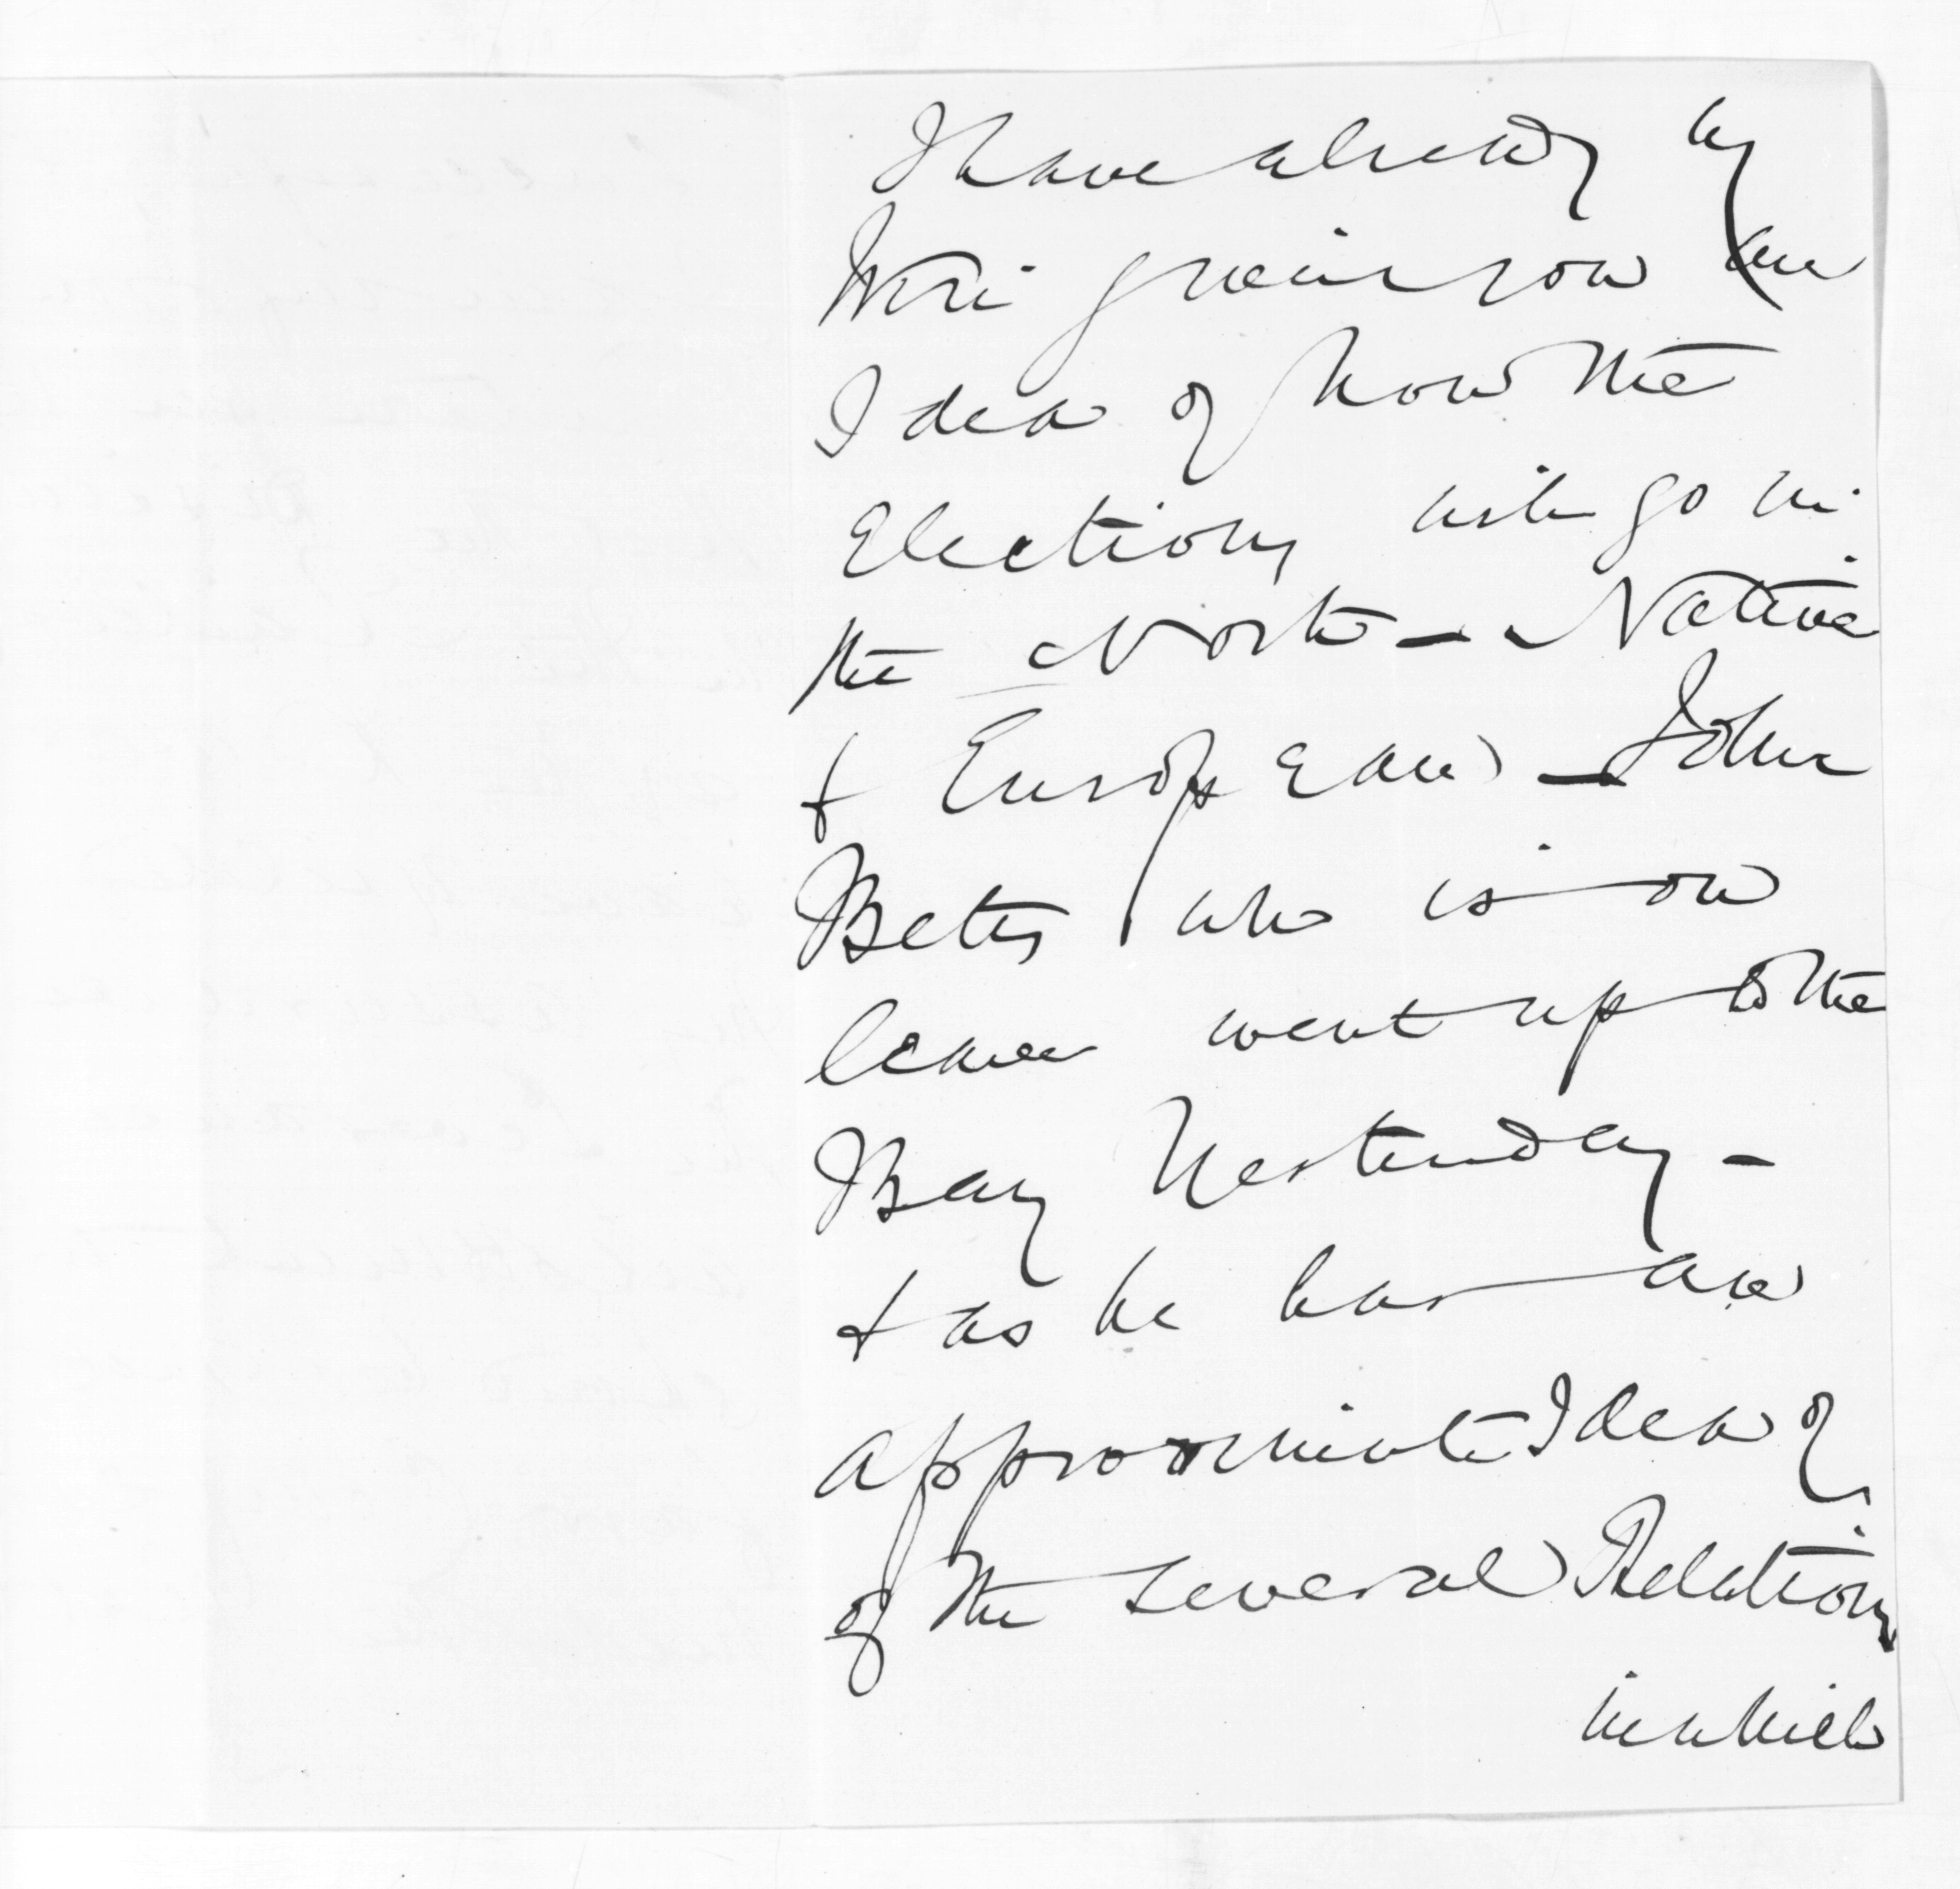 I have already by
Wire given you an
Idea of how the
Elections will go in
the North — Native
& European — John
Bettes who is on
leave went up to the
Bay Yesterday —
& as he has an
approximate Idea of
of the several Relations
in which